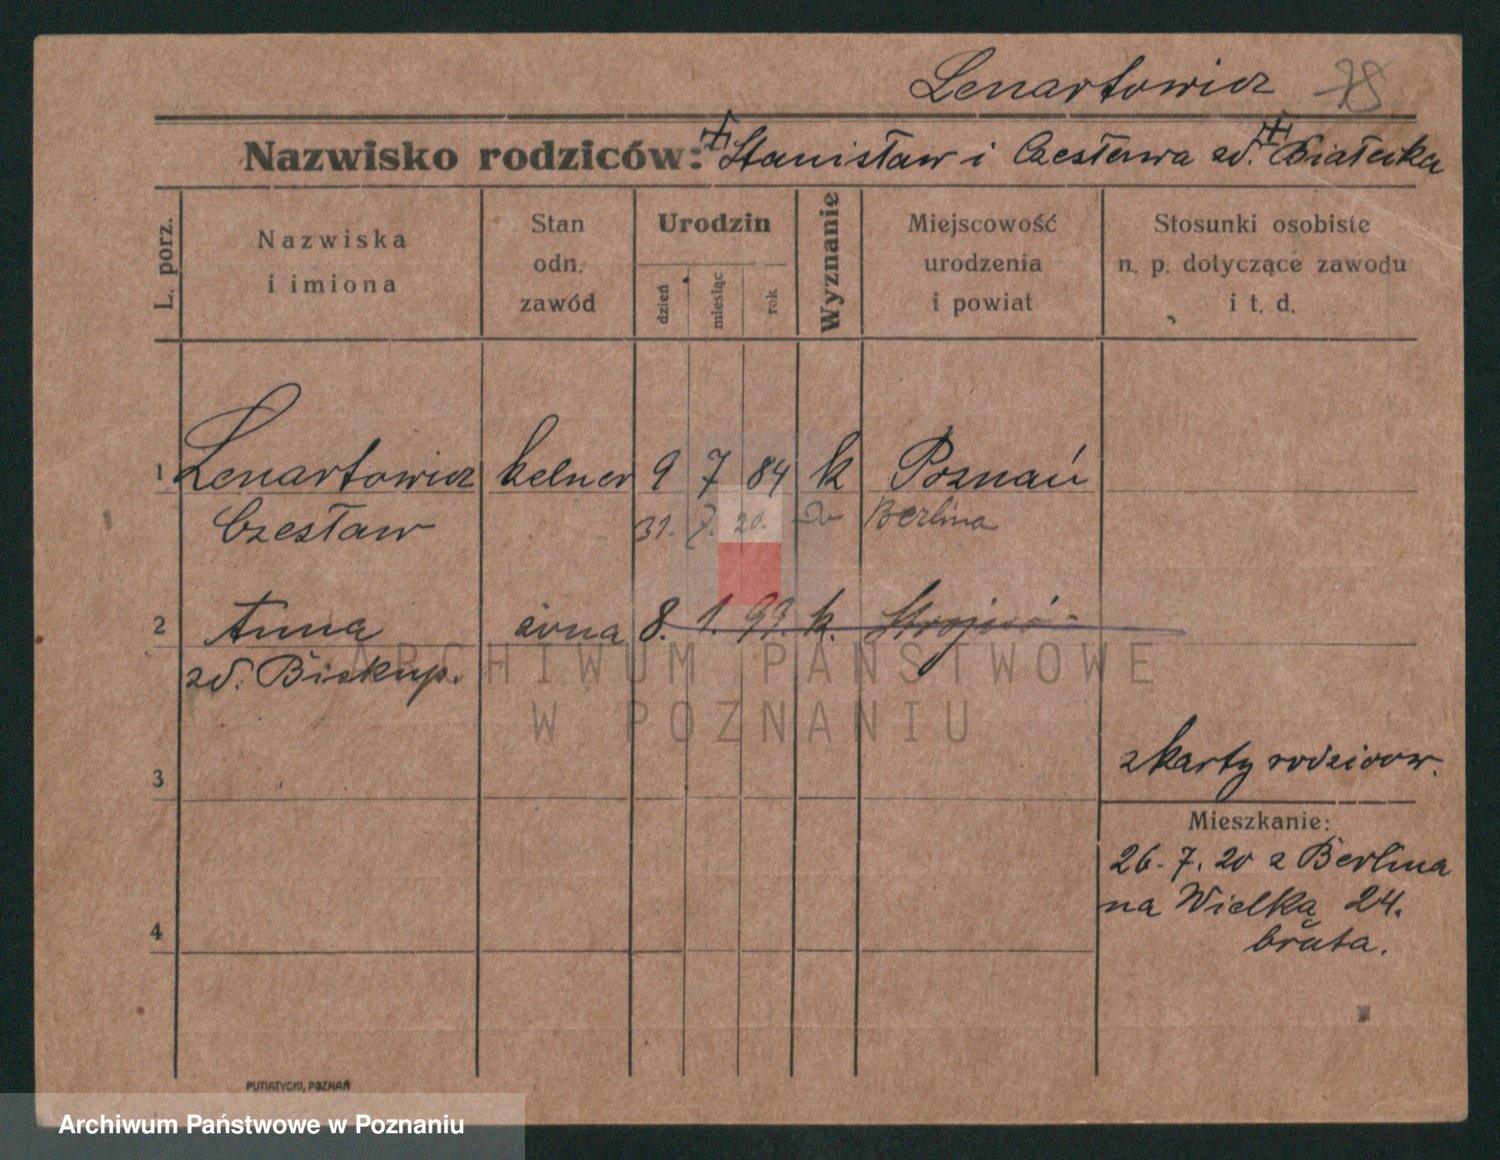 Lenartowicz
Nazwisko rodziców: Stanisław i Czesława zd. Białecka
L. porz.
Nazwiska
i imiona
Stan
odn.
zawód
Urodzin
dzień
miesiąc
rok
Wyznanie
Miejscowość
urodzenia
i powiat
Stosunki osobiste
n. p. dotyczące zawodu
i t. d.
1 Lenartowicz kelner 9 7 84 k Poznań
Czesław 31. 7. 20. do Berlina
2 Anna żona 8. 1. 93. k.
zd. Biskup.
ARCHIWUM PAŃSTWOWE
W POZNANIU
3
z karty rodziców.
Mieszkanie:
26. 7. 20 z Berlina
na Wielką 24.
4
brata.
PUTIATYCKI, POZNAŃ
Archiwum Państwowe w Poznaniu